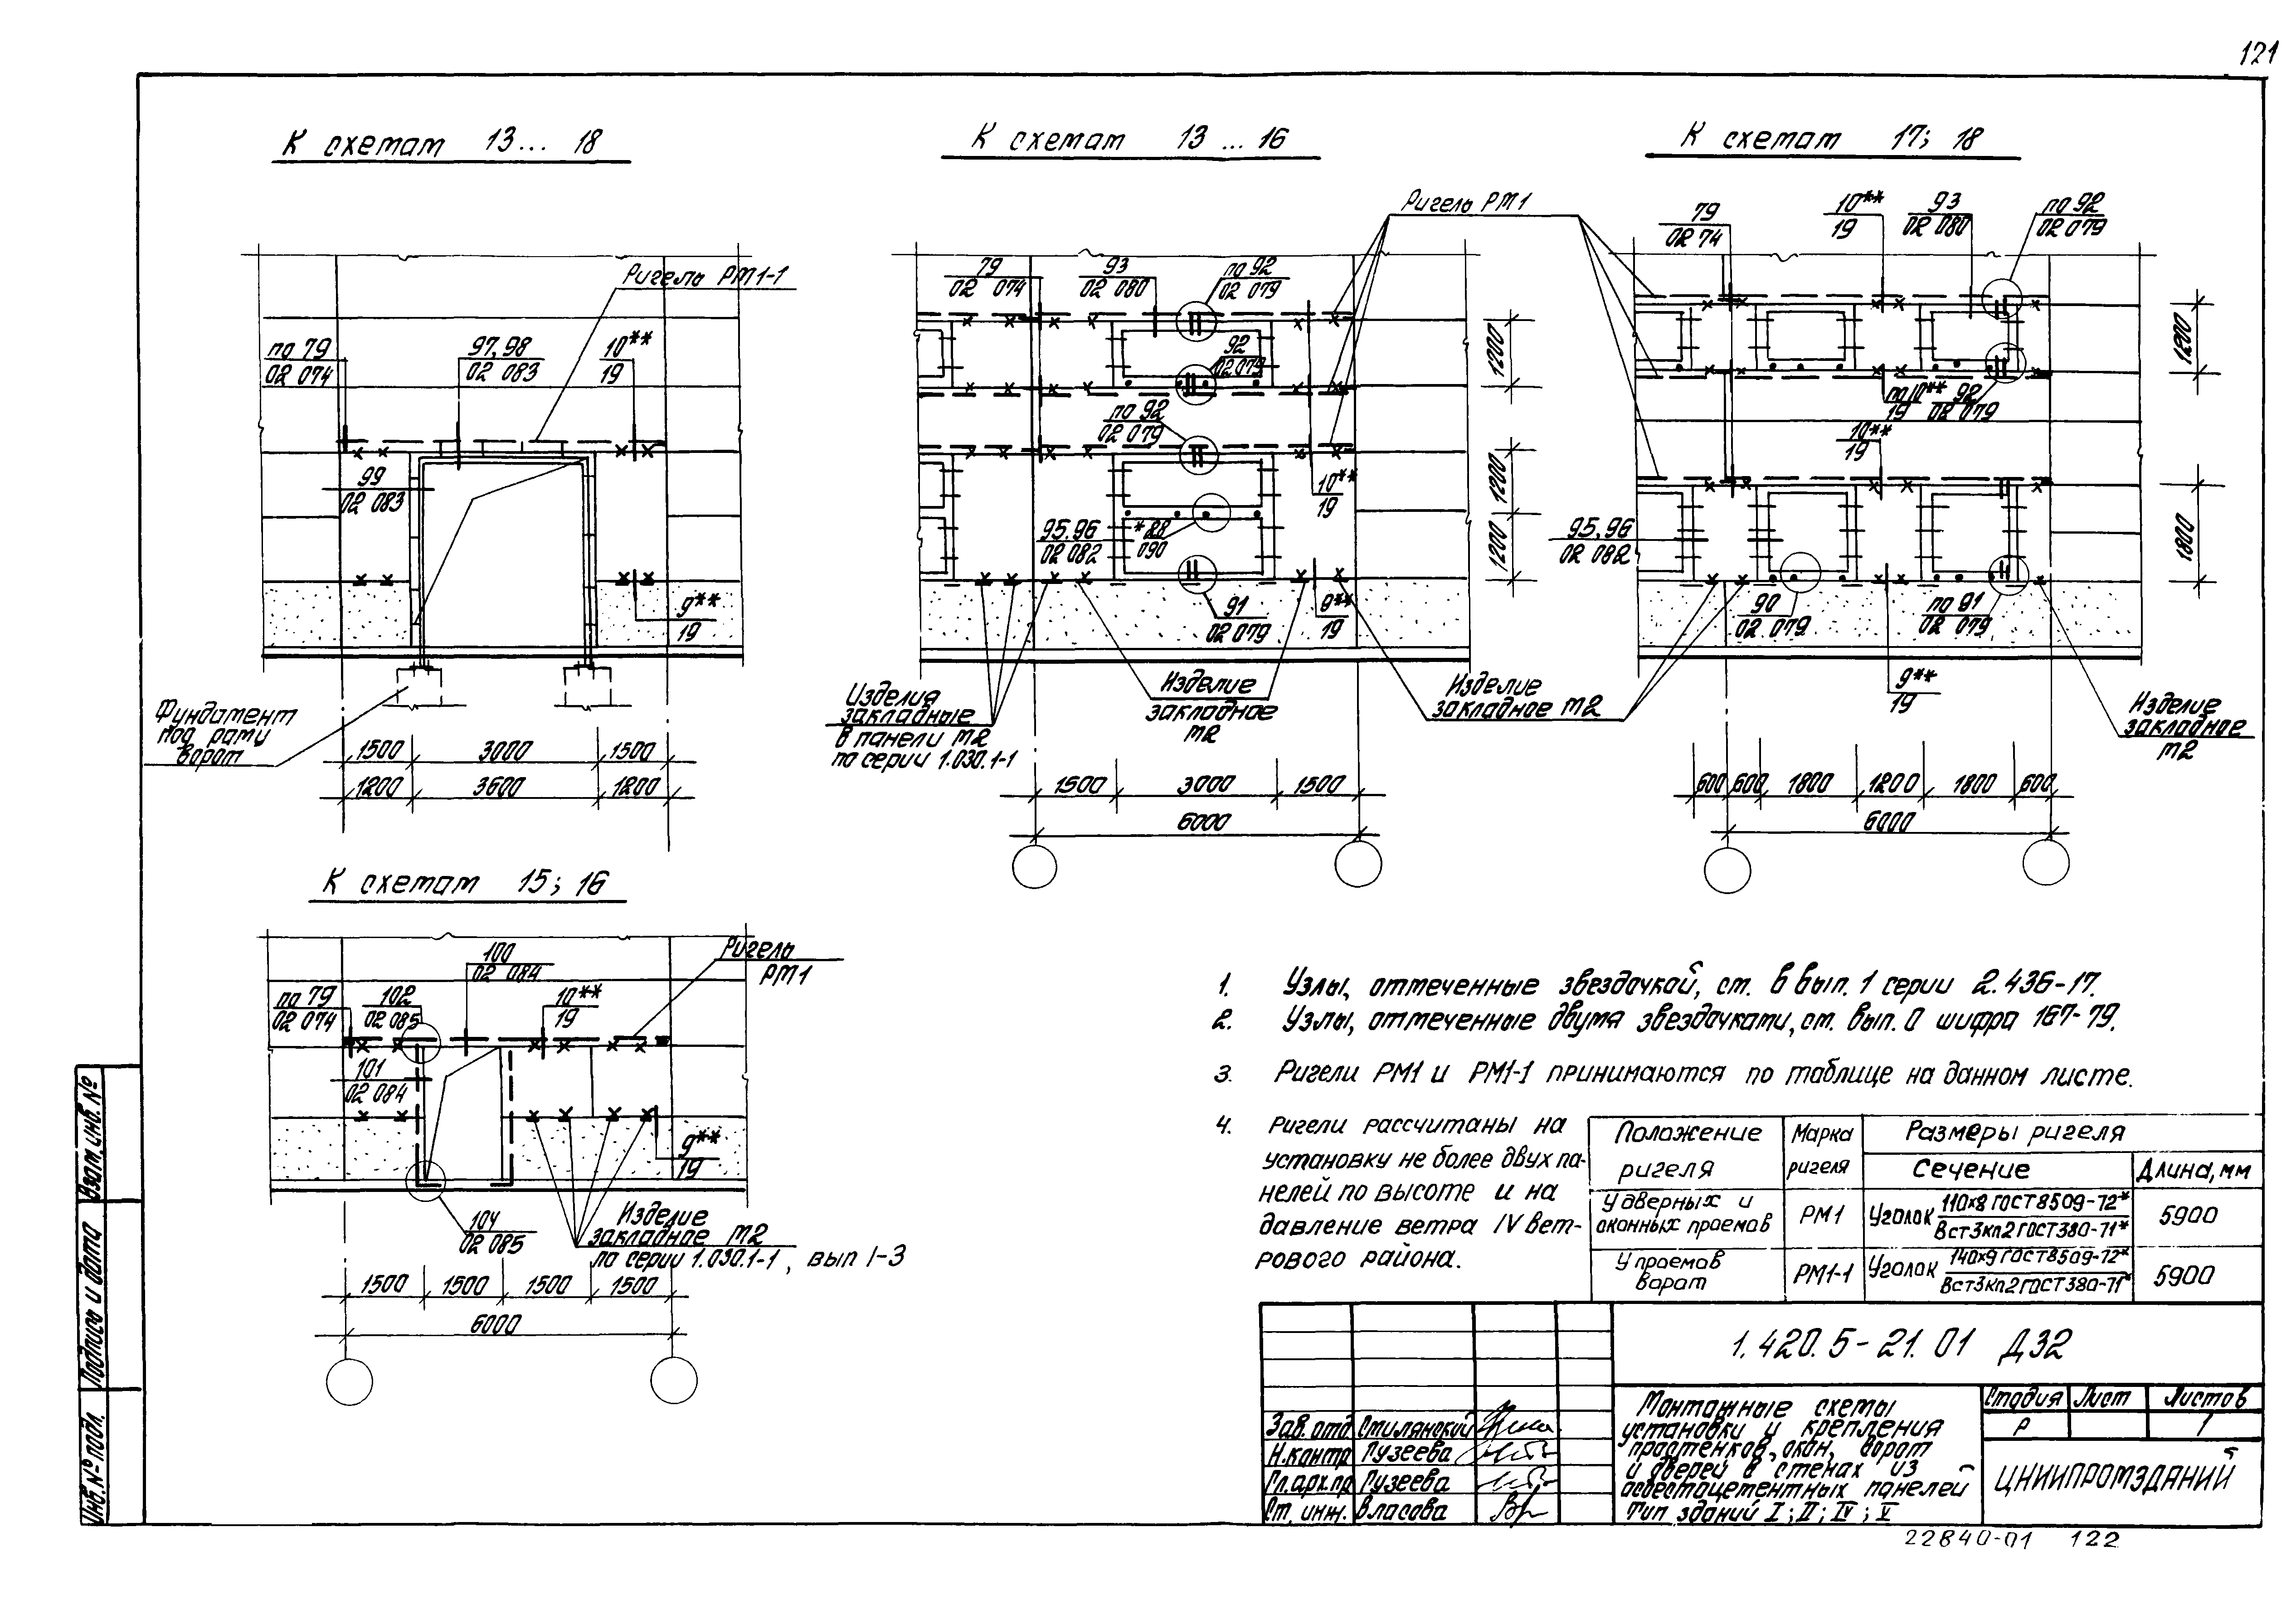 121
К схемам 13... 18
Ригель РМ1-1
по 79
02 074
97,98
02 083
10**
19
99
02 083
9**
19
Фундамент
под раму
ворот
1500 3000 1500
1200 3600 1200
К схемам 13 ... 16
Ригель РМ1
79
02 074
93
02 080
по 92
02 079
92
02 079
по 92
02 079
10**
19
95.96
02 082
*88
090
91
02 079
9**
19
1200
1200
1200
Изделия
закладные
в панели м2
по серии 1.030.1-1
Изделие
закладное
м2
Изделие
закладное м2
1500 3000 1500
6000
К схемам 17; 18
79
02 74
10**
19
93
02 080
по 92
02 079
по 10**
19
92
02 079
10**
19
95,96
02 082
90
02 079
по 91
02 079
9**
19
1200
1800
Изделие
закладное
м2
600 600 1800 1200 1800 600
6000
К схемам 15; 16
100
02 084
Ригель
РМ1
по 79
02 074
102
02 085
10**
19
101
02 084
9**
19
104
02 085
Изделие
закладное м2
по серии 1.030.1-1, вып 1-3
1500 1500 1500 1500
6000
1. Узлы, отмеченные звездочкой, см. в вып. 1 серии 2.436-17.
2. Узлы, отмеченные двумя звездочками, см. вып. 0 шифра 167-79.
3. Ригели РМ1 и РМ1-1 принимаются по таблице на данном листе.
4. Ригели рассчитаны на
установку не более двух па-
нелей по высоте и на
давление ветра IV вет-
рового района.
Положение ригеля Марка ригеля Размеры ригеля
Сечение Длина, мм
У дверных и оконных проемов РМ1 Уголок 110х8 ГОСТ 8509-72* / Вст3кп2 ГОСТ 380-71* 5900
У проемов ворот РМ1-1 Уголок 140х9 ГОСТ 8509-72* / Вст3кп2 ГОСТ 380-71* 5900
1.420.5-21.01 Д32
Монтажные схемы
установки и крепления
простенков, окон, ворот
и дверей в стенах из
асбестоцементных панелей
Тип зданий I; II; IV; V
Стадия Лист Листов
Р 1
ЦНИИПРОМЗДАНИЙ
Зав. отд Смилянский
Н. контр Лузеева
Гл. арх. пр Лузеева
Ст. инж. Власова
Взам. инв. №
Подпись и дата
Инв. № подл.
22840-01 122